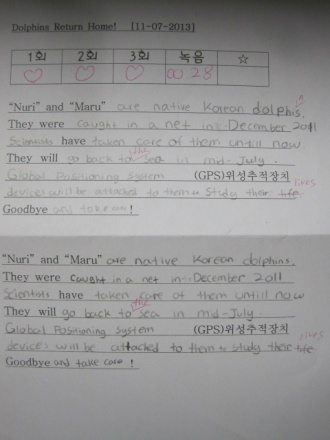 Dolphins Return Home! [11-07-2013]
1회 2회 3회 녹음 ☆
♡ ♡ ♡ 28
"Nuri" and "Maru" are native Korean dolphis. n
They were caught in a net in December 2011
Scientists have taken care of them untill now
the
They will go back to sea in mid-July.
Global Positioning System (GPS)위성추적장치
lives
devices will be attached to them to study their life
Goodbye and take care!
"Nuri" and "Maru" are native Korean dolphins.
They were caught in a net in December 2011
Scientists have taken care of them untill now
the
They will go back to sea in mid-July
Global Positioning System (GPS)위성추적장치
lives
devices will be attached to them to study their life
Goodbye and take care!